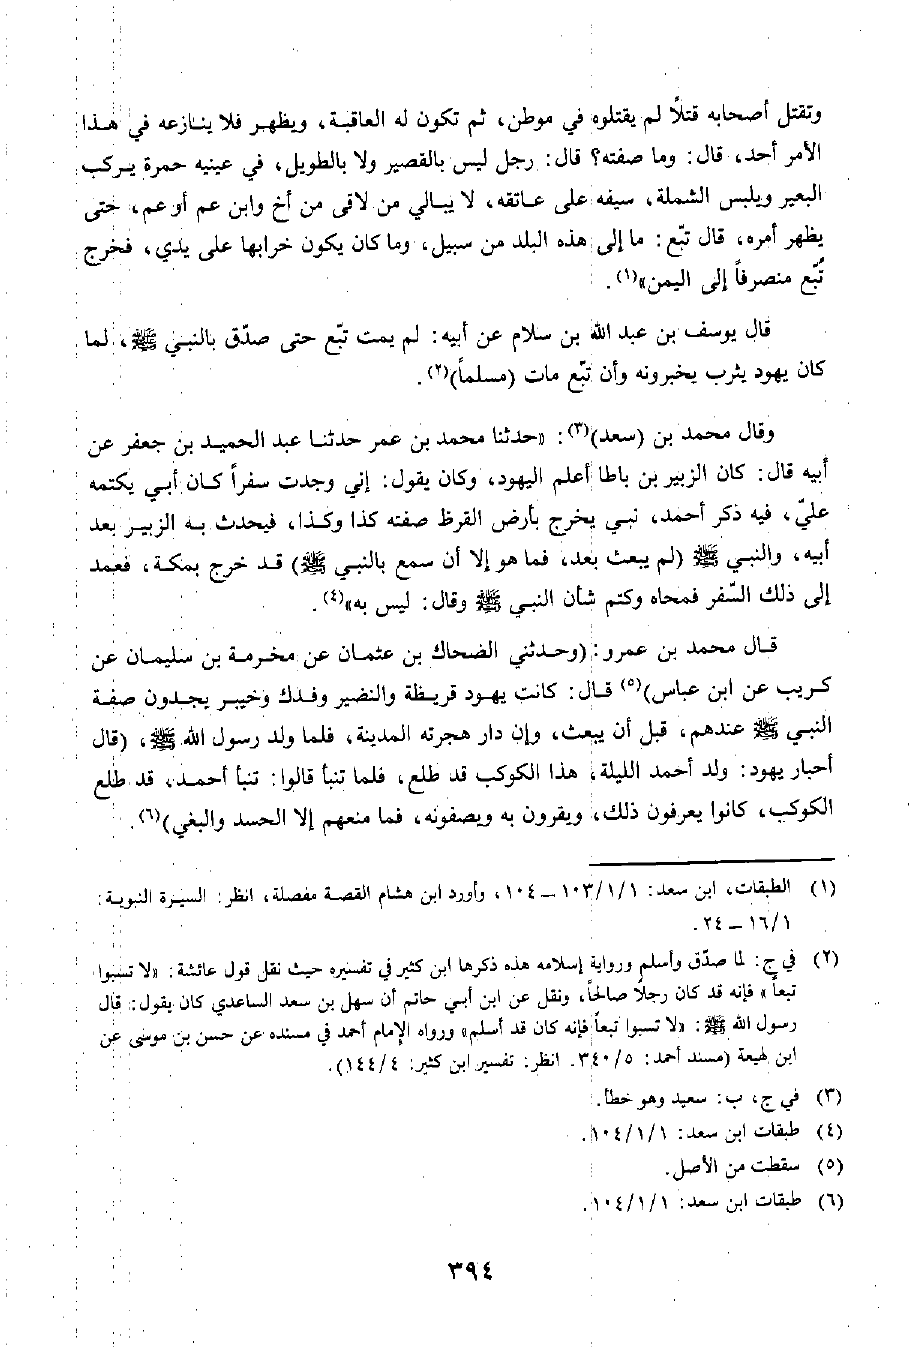 وتقتل أصحابه قتلًا لم يقتلوه في موطن، ثم تكون له العاقبة، ويظهر فلا ينازعه في هذا
الأمر أحد، قال: وما صفته؟ قال: رجل ليس بالقصير ولا بالطويل، في عينيه حمرة يركب
البعير ويلبس الشملة، سيفه على عاتقه، لا يبالي من لاقى من أخ وابن عم أو عم، حتى
يظهر أمره، قال تبّع: ما إلى هذه البلد من سبيل، وما كان يكون خرابها على يدي، فخرج
تُبّع منصرفاً إلى اليمن»(١).
قال يوسف بن عبد الله بن سلام عن أبيه: لم يمت تبّع حتى صدّق بالنبي ﷺ، لما
كان يهود يثرب يخبرونه وأن تبّع مات (مسلماً)(٢).
وقال محمد بن (سعد)(٣): «حدثنا محمد بن عمر حدثنا عبد الحميد بن جعفر عن
أبيه قال: كان الزبير بن باطا أعلم اليهود، وكان يقول: إني وجدت سفراً كان أبي يكتمه
عليّ، فيه ذكر أحمد، نبي يخرج بأرض القرظ صفته كذا وكذا، فيحدث به الزبير بعد
أبيه، والنبي ﷺ (لم يبعث بعد، فما هو إلا أن سمع بالنبي ﷺ) قد خرج بمكة، فعمد
إلى ذلك السّفر فمحاه وكتم شأن النبي ﷺ وقال: ليس به»(٤).
قال محمد بن عمرو: (وحدثني الضحاك بن عثمان عن مخرمة بن سليمان عن
كريب عن ابن عباس)(٥) قال: كانت يهود قريظة والنضير وفدك وخيبر يجدون صفة
النبي ﷺ عندهم، قبل أن يبعث، وإن دار هجرته المدينة، فلما ولد رسول الله ﷺ، (قال
أحبار يهود: ولد أحمد الليلة، هذا الكوكب قد طلع، فلما تنبأ قالوا: تنبأ أحمد، قد طلع
الكوكب، كانوا يعرفون ذلك، ويقرون به ويصفونه، فما منعهم إلا الحسد والبغي)(٦).
(١) الطبقات، ابن سعد: ١/١/١٠٣ – ١٠٤، وأورد ابن هشام القصة مفصلة، انظر: السيرة النبوية:
١/١٦ – ٢٤.
(٢) في ج: لما صدّق وأسلم ورواية إسلامه هذه ذكرها ابن كثير في تفسيره حيث نقل قول عائشة: «لا تسبوا
تبعاً» فإنه قد كان رجلًا صالحاً، ونقل عن ابن أبي حاتم أن سهل بن سعد الساعدي كان يقول: قال
رسول الله ﷺ: «لا تسبوا تبعاً فإنه كان قد أسلم» ورواه الإمام أحمد في مسنده عن حسن بن موسى عن
ابن لهيعة (مسند أحمد: ٥/٣٤٠. انظر: تفسير ابن كثير: ٤/١٤٤).
(٣) في ج، ب: سعيد وهو خطأ.
(٤) طبقات ابن سعد: ١/١/١٠٤.
(٥) سقطت من الأصل.
(٦) طبقات ابن سعد: ١/١/١٠٤.
٣٩٤